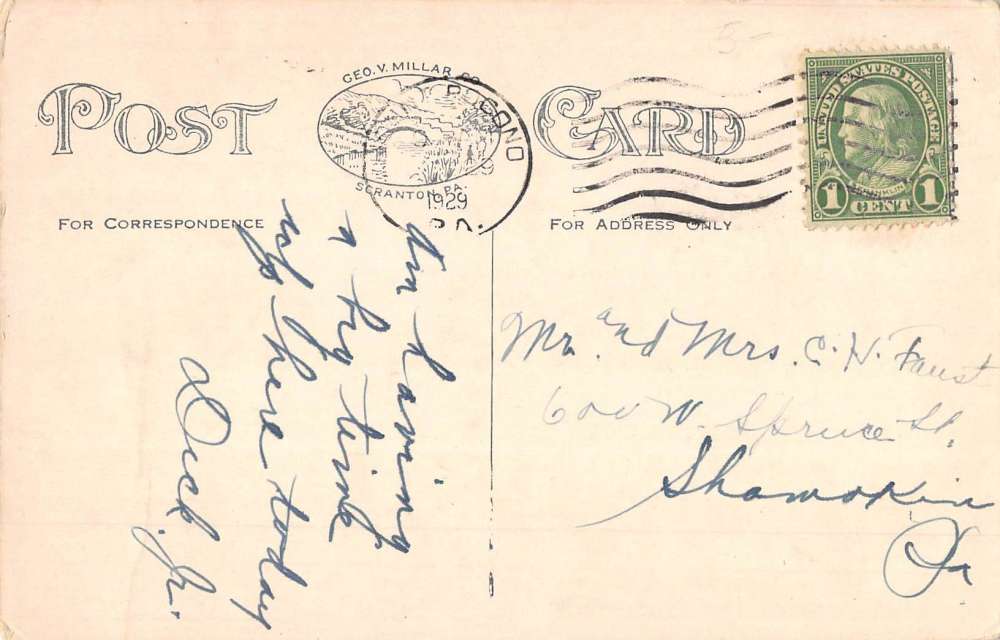 POST CARD
GEO. V. MILLAR CO
SCRANTON, PA.
POCONO
1929
PA.
UNITED STATES POSTAGE
FRANKLIN
1 CENT 1
FOR CORRESPONDENCE
FOR ADDRESS ONLY
Am having
a big time
up here today
Dick. Jr.
Mr. and Mrs. C. H. Faust
600 W. Spruce St.
Shamokin
Pa